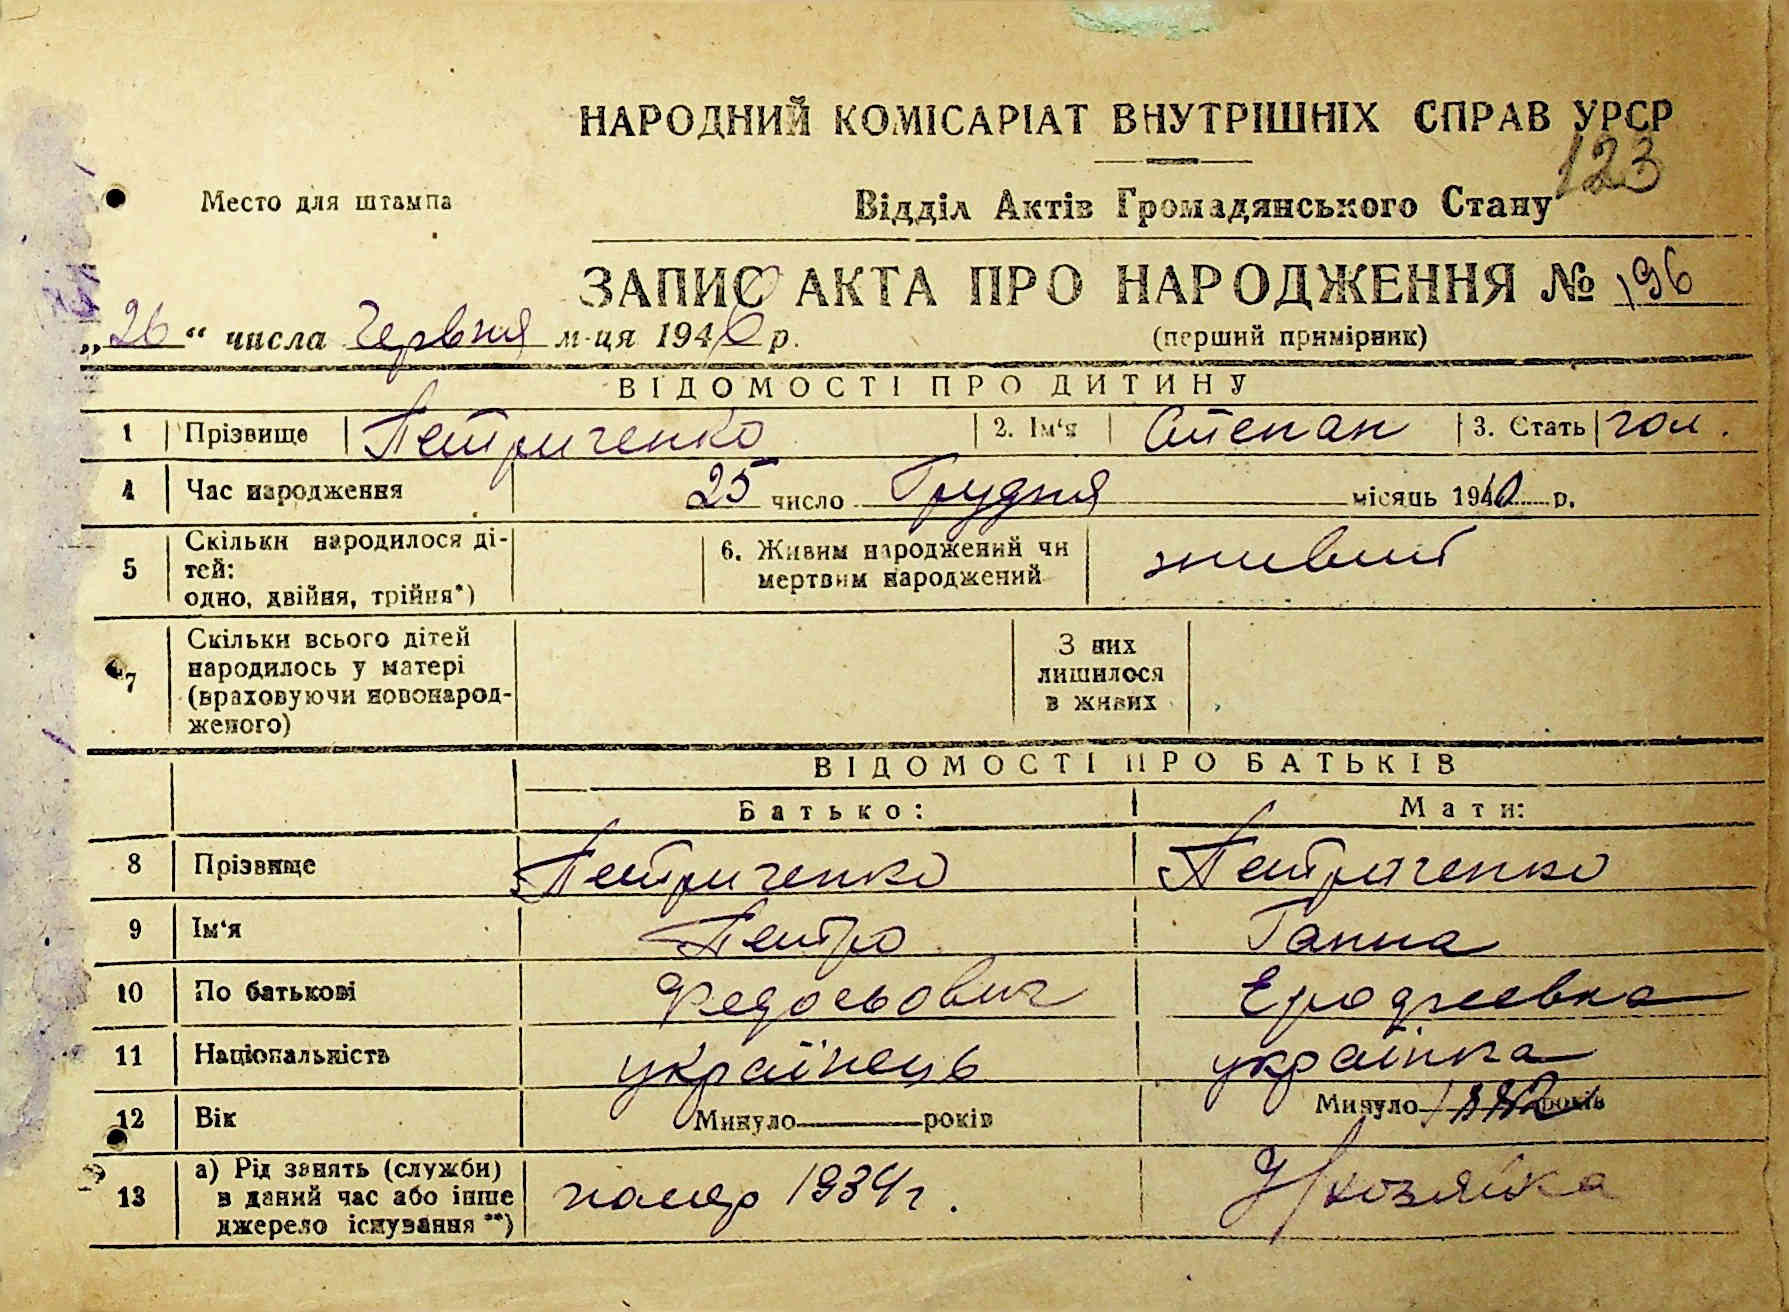 НАРОДНИЙ КОМІСАРІАТ ВНУТРІШНІХ СПРАВ УРСР
123
Место для штампа
Відділ Актів Громадянського Стану
ЗАПИС АКТА ПРО НАРОДЖЕННЯ № 196
„26“ числа Червня м-ця 1940 р.
(перший примірник)
ВІДОМОСТІ ПРО ДИТИНУ
1 Прізвище Петриченко 2. Ім'я Степан 3. Стать чол.
4 Час народження 25 число Грудня місяць 1910 р.
5 Скільки народилося ді-
тей:
одно, двійня, трійня*)
6. Живим народжений чи
мертвим народжений живий
7 Скільки всього дітей
народилось у матері
(враховуючи новонарод-
женого)
З них
лишилося
в живих
ВІДОМОСТІ ПРО БАТЬКІВ
Батько: Мати:
8 Прізвище Петриченко Петриченко
9 Ім'я Петро Ганна
10 По батькові Федосьович
11 Національність українець українка
12 Вік Минуло років Минуло 1882 років
13 а) Рід занять (служби)
в даний час або інше
джерело існування **)
помер 1934 г. хозяйка